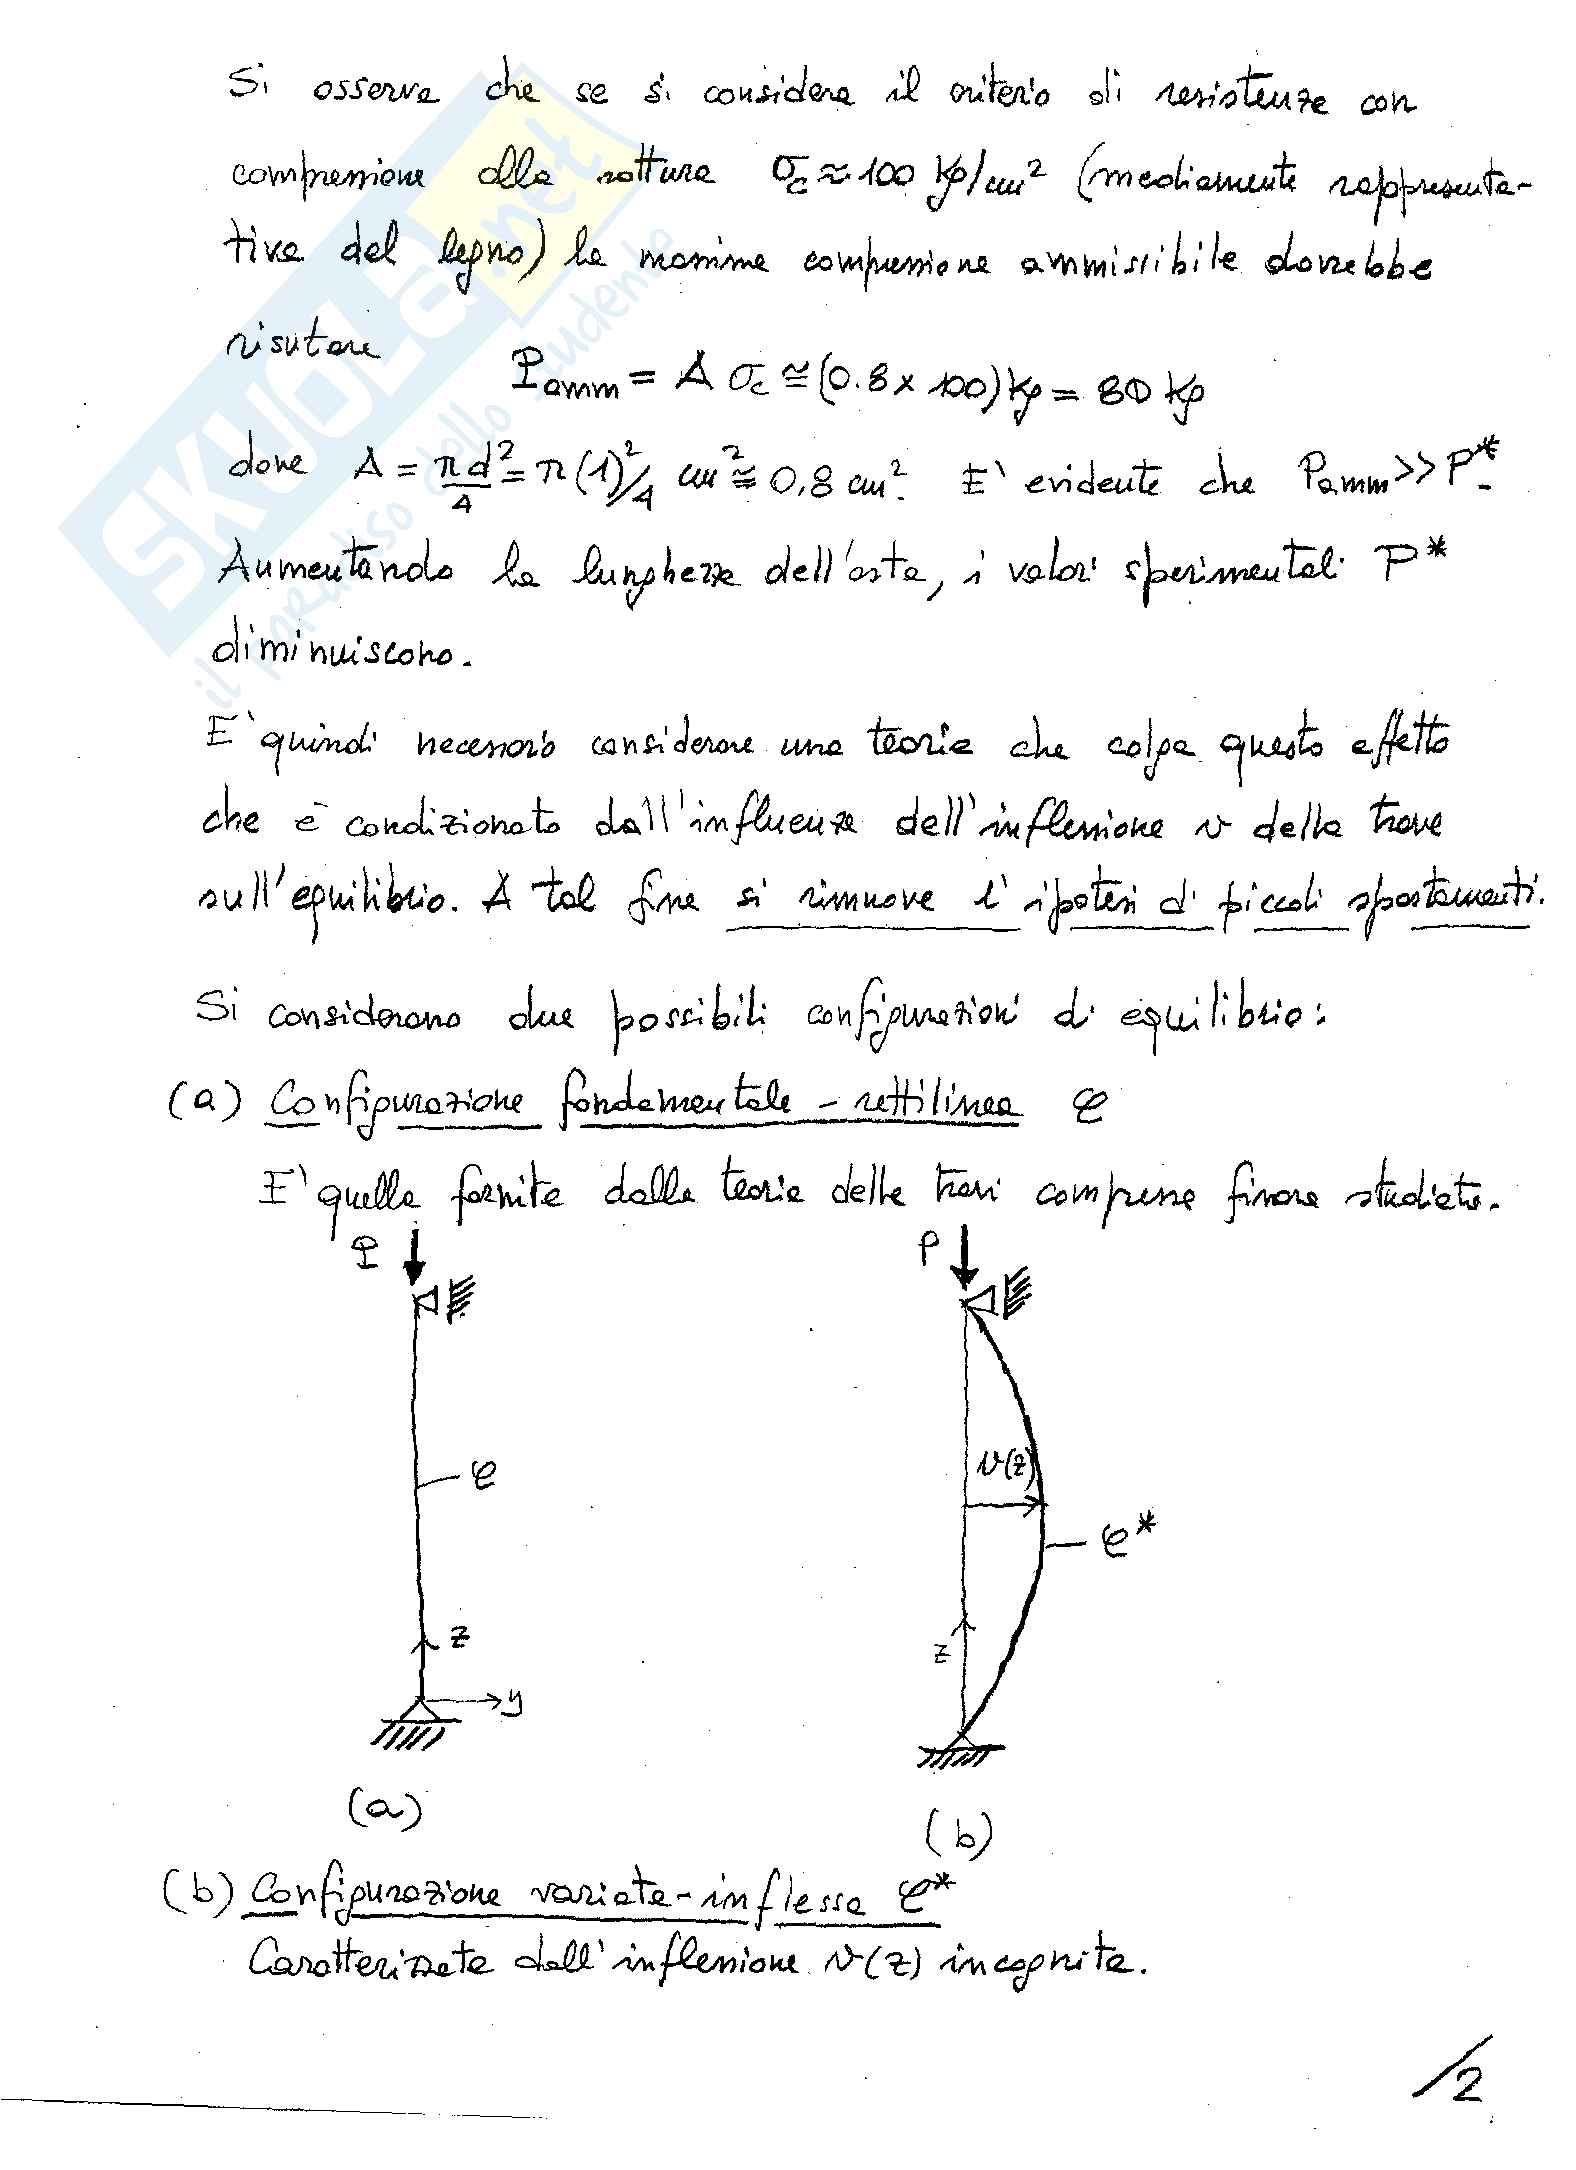 Si osserva che se si considera il criterio di resistenza con
compressione alla rottura σc ≈ 100 Kp/cm² (mediamente rappresenta-
tiva del legno) la massima compressione ammissibile dovrebbe
risutare
Pamm = A σc ≅ (0.8 x 100) Kp = 80 Kp
dove A = πd²/4 = π(1)²/4 cm² ≅ 0,8 cm². E' evidente che Pamm >> P*.
Aumentando la lunghezza dell'asta, i valori sperimentali P*
diminuiscono.
E' quindi necessario considerare una teoria che colga questo effetto
che è condizionato dall'influenza dell'inflessione v della trave
sull'equilibrio. A tal fine si rimuove l'ipotesi di piccoli spostamenti.
Si considerano due possibili configurazioni di equilibrio:
(a) Configurazione fondamentale - rettilinea C
E' quella fornita dalla teoria delle travi compresse finora studiata.
P P
C v(z)
C*
z z
y
(a) (b)
(b) Configurazione variata - inflessa C*
Caratterizzata dall'inflessione v(z) incognita.
/2
SKUOLA.net
il paradiso dello studente